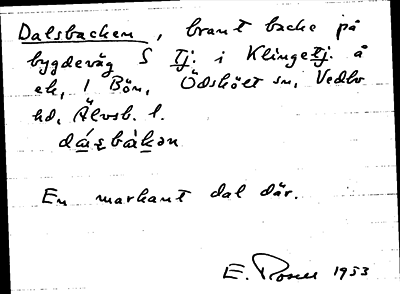 Dalsbacken, brant backe på
bygdeväg S Tj. i Klingetj. å
ek. 1 Bön, Ödskölt sn, Vedbo
hd, Älvsb. l.
En markant dal där.
E. Rosell 1953